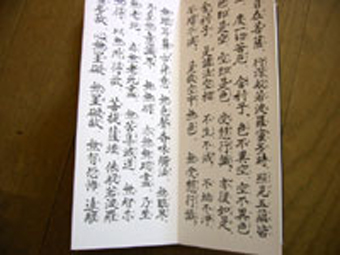 自在菩薩 行深般若波羅蜜多時 照見五蘊皆
度一切苦厄 舎利子 色不異空 空不異色
色即是空 空即是色 受想行識 亦復如是
舎利子 是諸法空相 不生不滅 不垢不浄
不増不減 是故空中無色 無受想行識
無眼耳鼻舌身意 無色声香味触法 無眼界
乃至無意識界 無無明 亦無無明尽 乃至
無老死 亦無老死尽 無苦集滅道 無智亦
無得 以無所得故 菩提薩埵 依般若波羅
心無罣礙 無罣礙故 無有恐怖 遠離